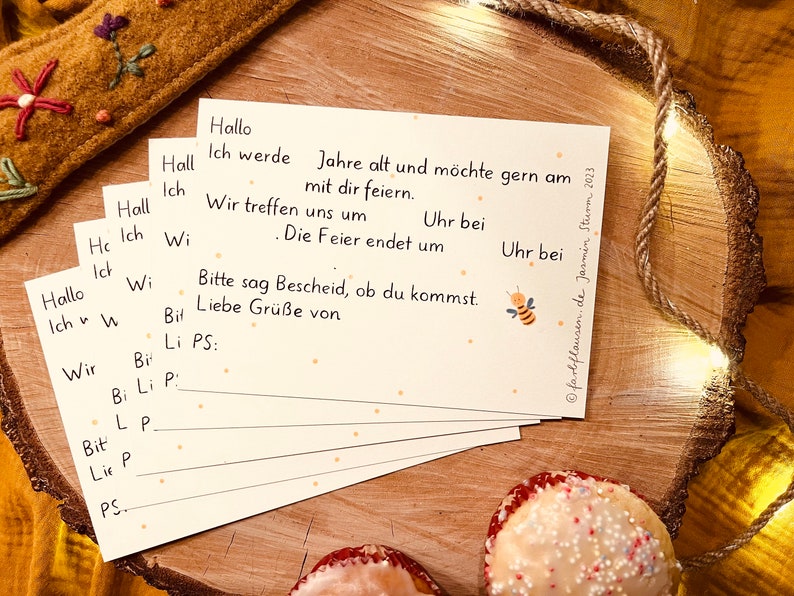 Hallo
Ich werde Jahre alt und möchte gern am
mit dir feiern.
Wir treffen uns um Uhr bei
. Die Feier endet um Uhr bei
.
Bitte sag Bescheid, ob du kommst.
Liebe Grüße von
PS:
© farbflausen.de Jasmin Sturm 2023
Hallo
Ich
Wi
Bit
Li
P.
Hallo
Ich
Wi
Bit
Li
P.
Hallo
Ich
W
Bi
L
P
Hallo
Ich w
Wir
Bitt
Lie
PS.